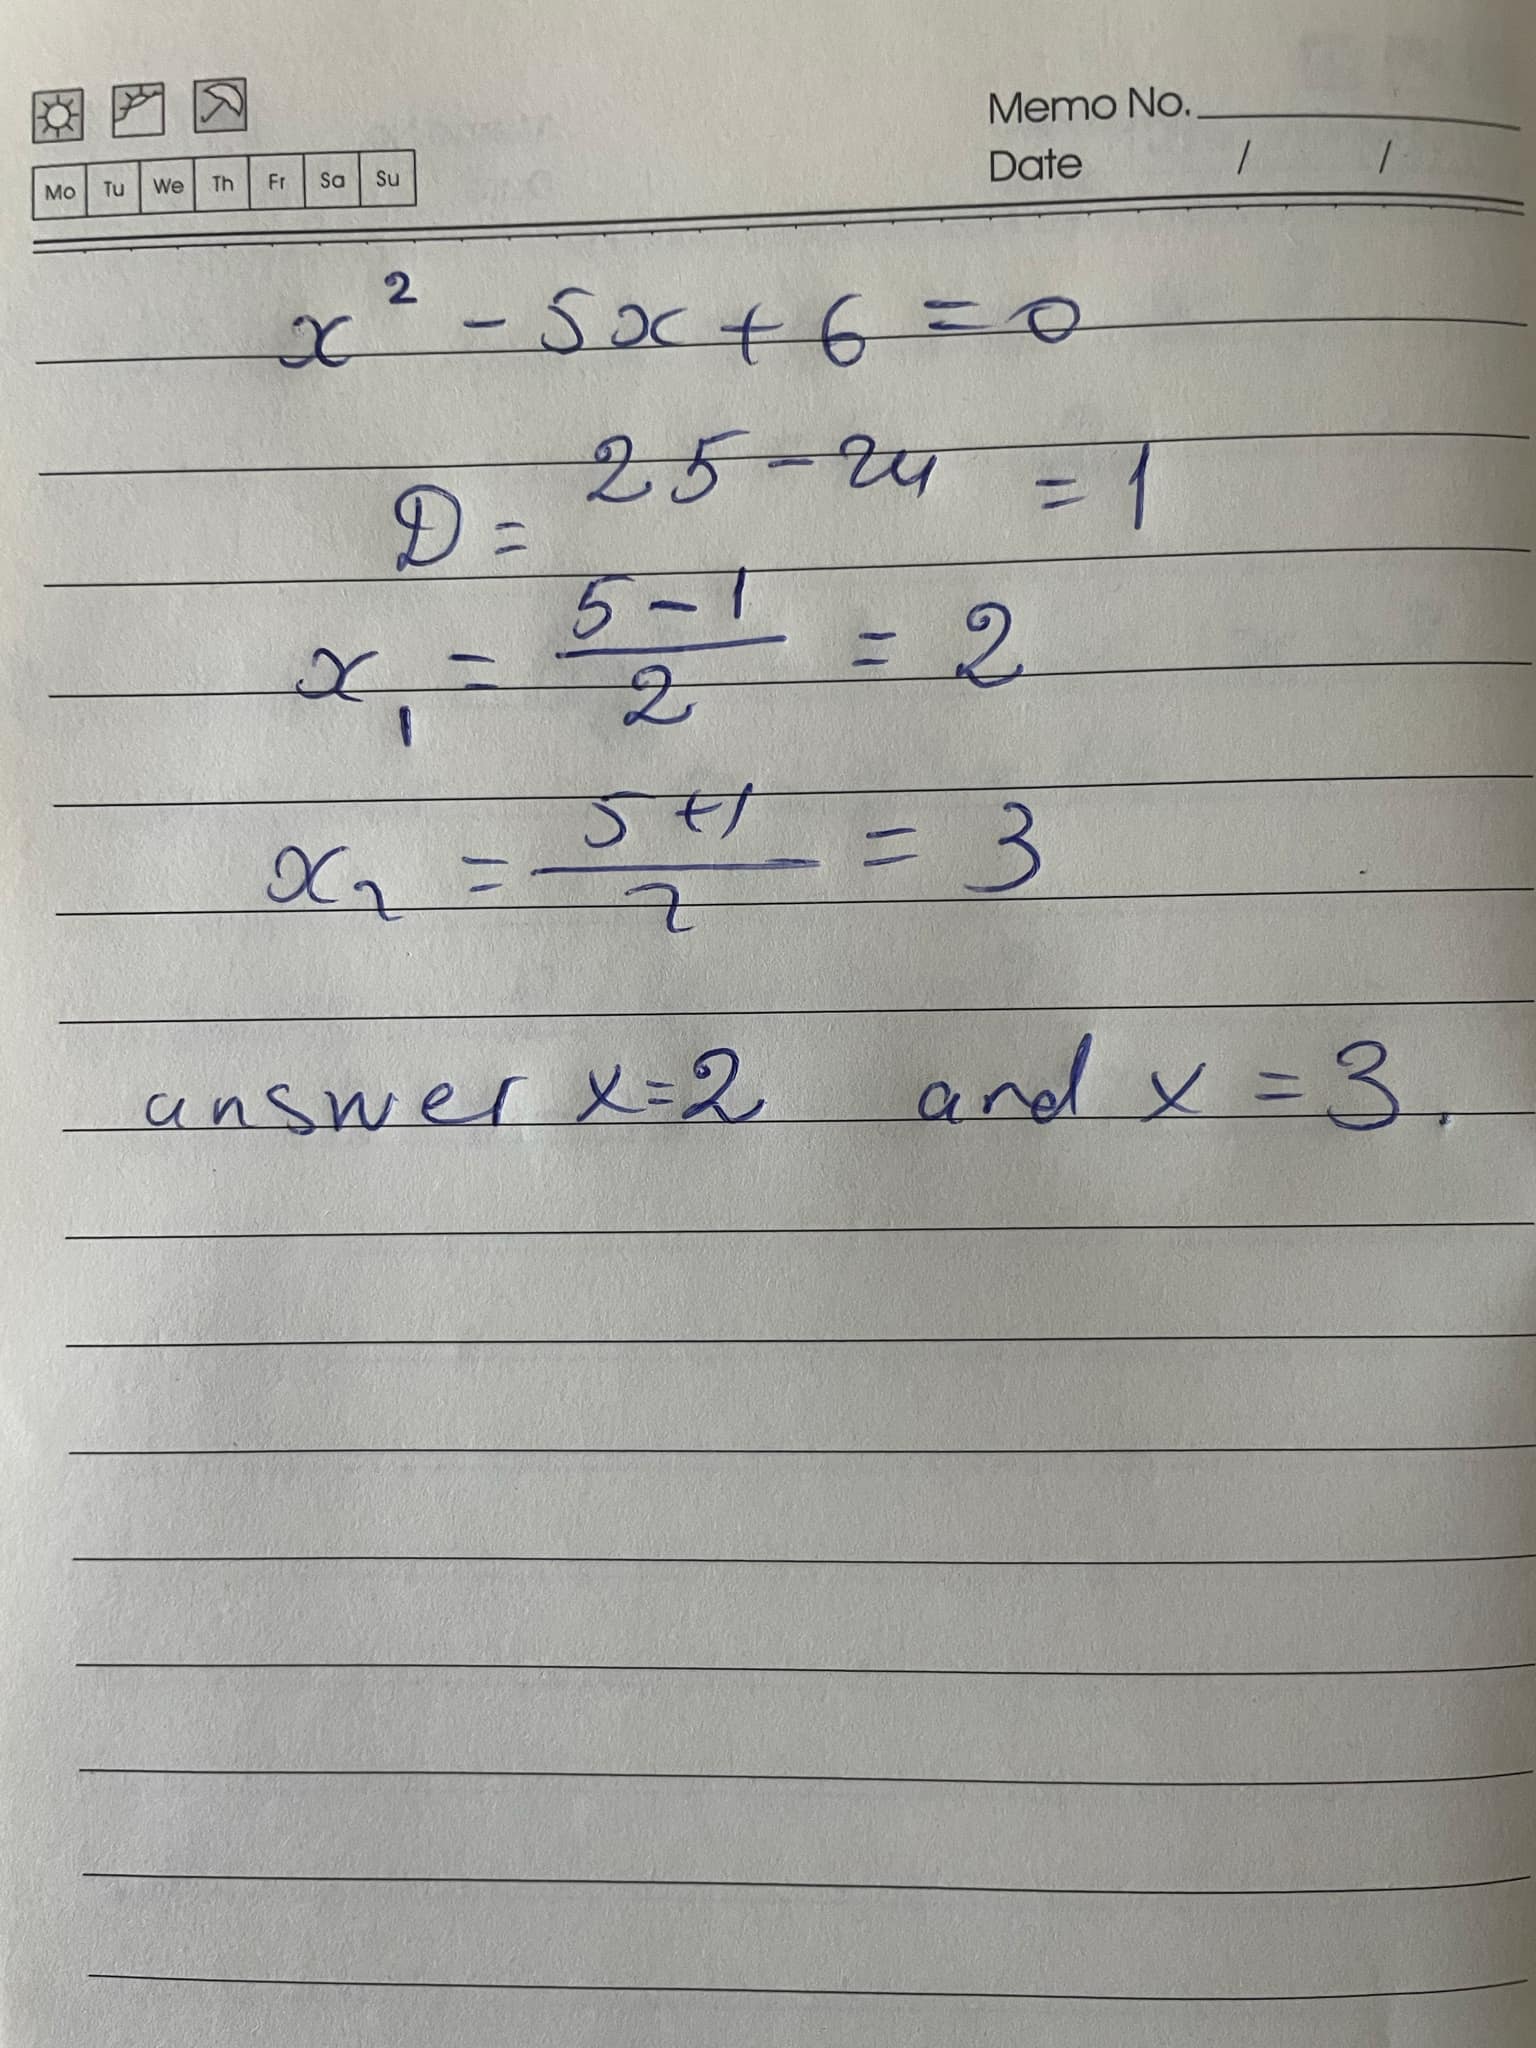 Memo No.
Mo Tu We Th Fr Sa Su
Date / /
x² - 5x + 6 = 0
D = 25 - 24 = 1
x₁ = (5 - 1)/2 = 2
x₂ = (5 + 1)/2 = 3
answer x=2 and x = 3.